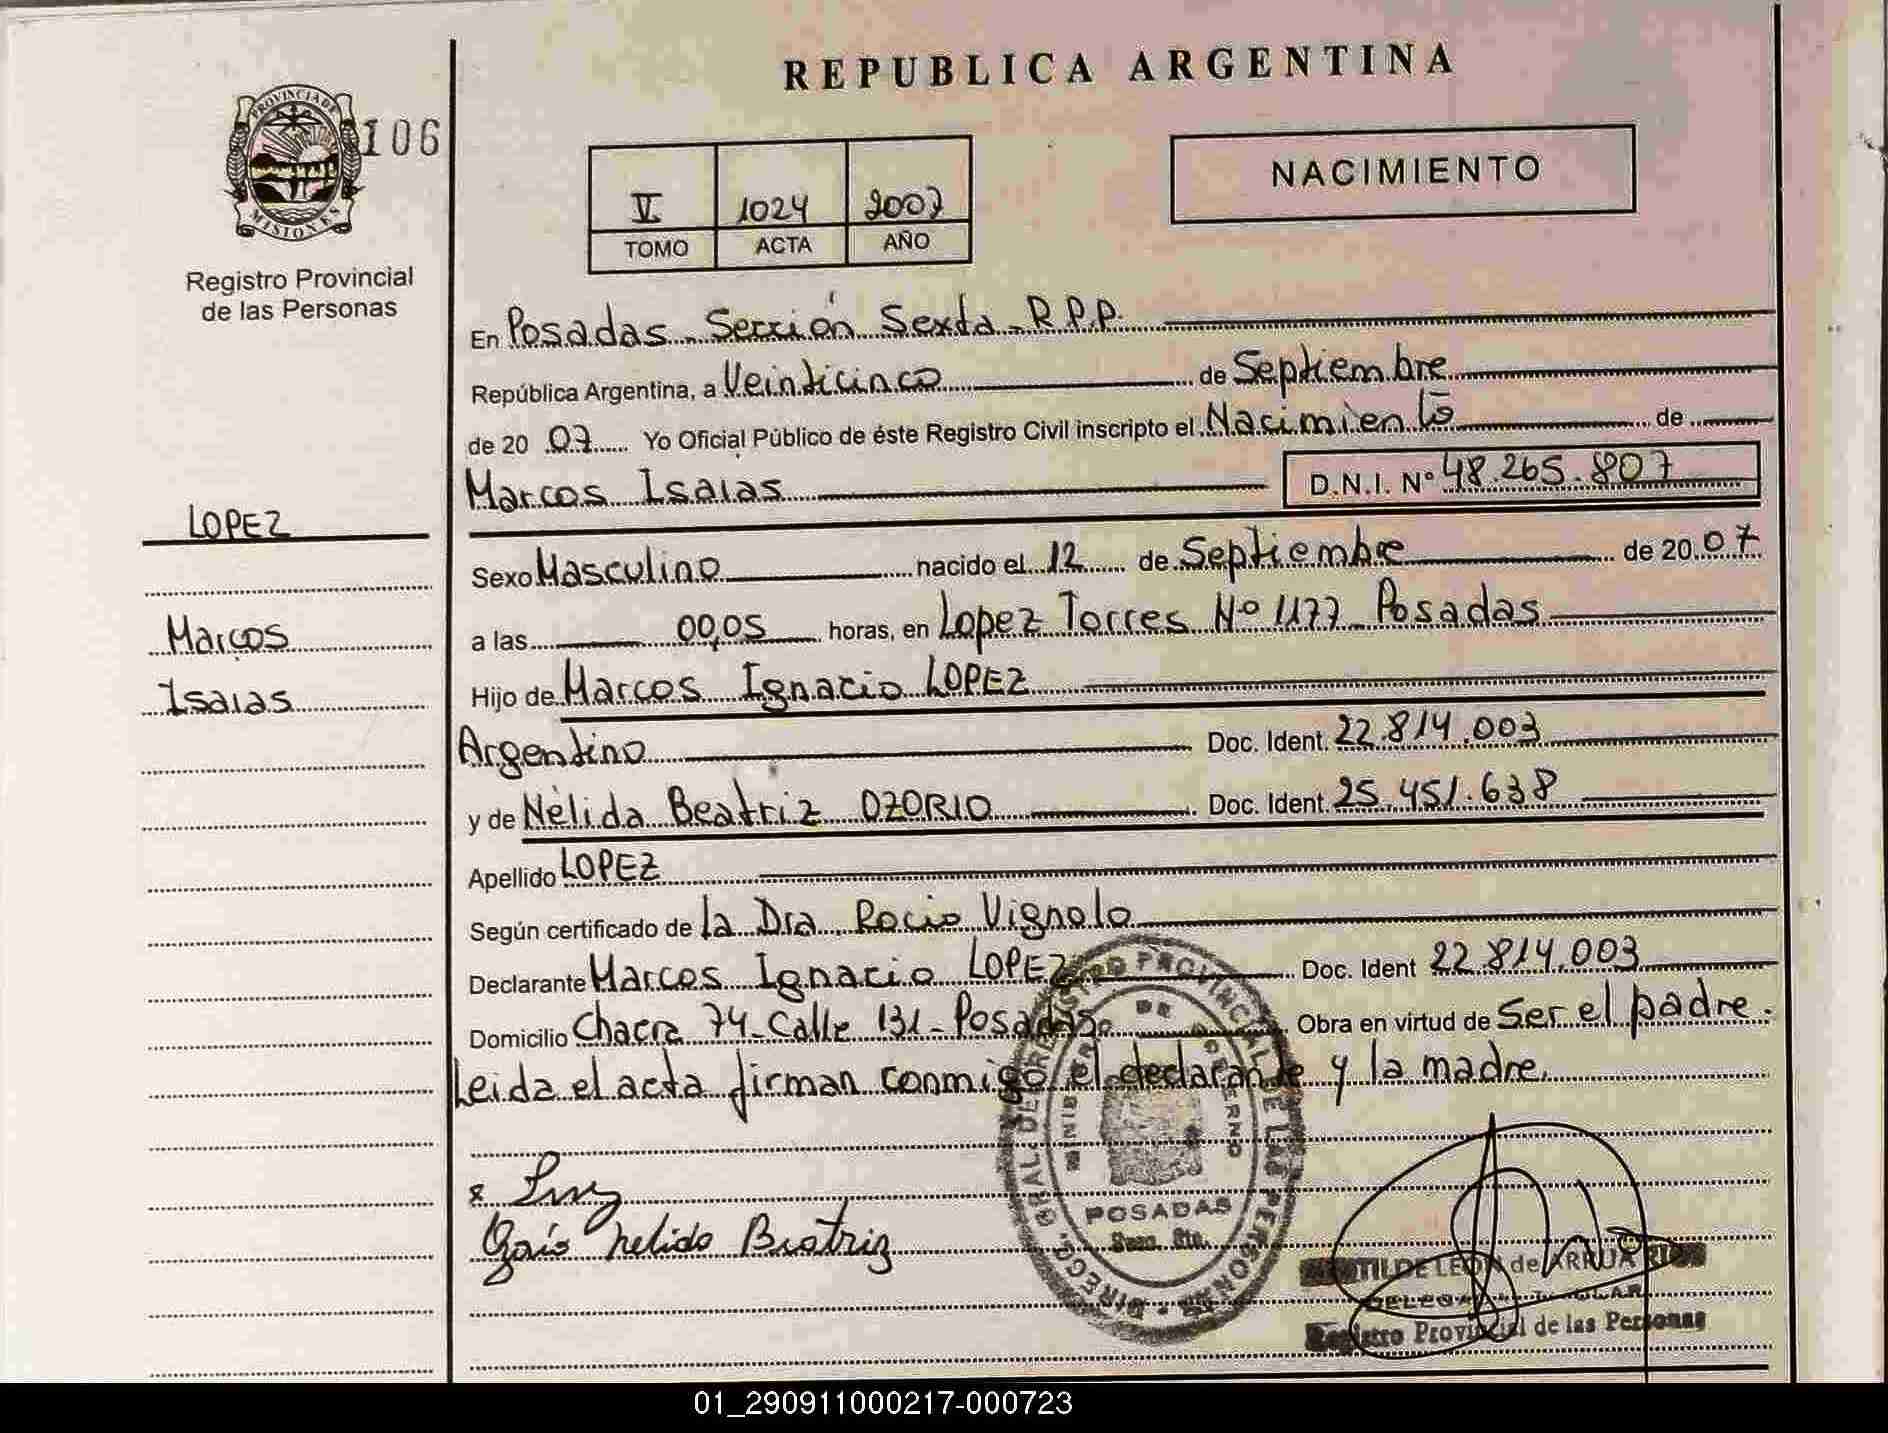 REPUBLICA ARGENTINA
PROVINCIA DE
MISIONES
106
Registro Provincial
de las Personas
V 1024 2007
TOMO ACTA AÑO
NACIMIENTO
En Posadas - Sección Sexta - R.P.P.
República Argentina, a Veinticinco de Septiembre
de 20 07 Yo Oficial Público de éste Registro Civil inscripto el Nacimiento de
Marcos Isaias D.N.I. Nº 48.265.807
LOPEZ
Marcos
Isaias
Sexo Masculino nacido el 12 de Septiembre de 20 07
a las 00,05 horas, en Lopez Torres Nº 1177 - Posadas
Hijo de Marcos Ignacio LOPEZ
Argentino Doc. Ident. 22.814.003
y de Nélida Beatriz OZORIO Doc. Ident. 25.451.638
Apellido LOPEZ
Según certificado de la Dra. Rocio Vignolo
Declarante Marcos Ignacio LOPEZ Doc. Ident 22.814.003
Domicilio Chacra 74 - Calle 131 - Posadas Obra en virtud de Ser el padre.
Leida el acta firman conmigo el declarante y la madre.
Nelida Beatriz
PROVINCIAL DE LAS PERSONAS
POSADAS
DE LEON de ARRUA
Registro Provincial de las Personas
01_290911000217-000723